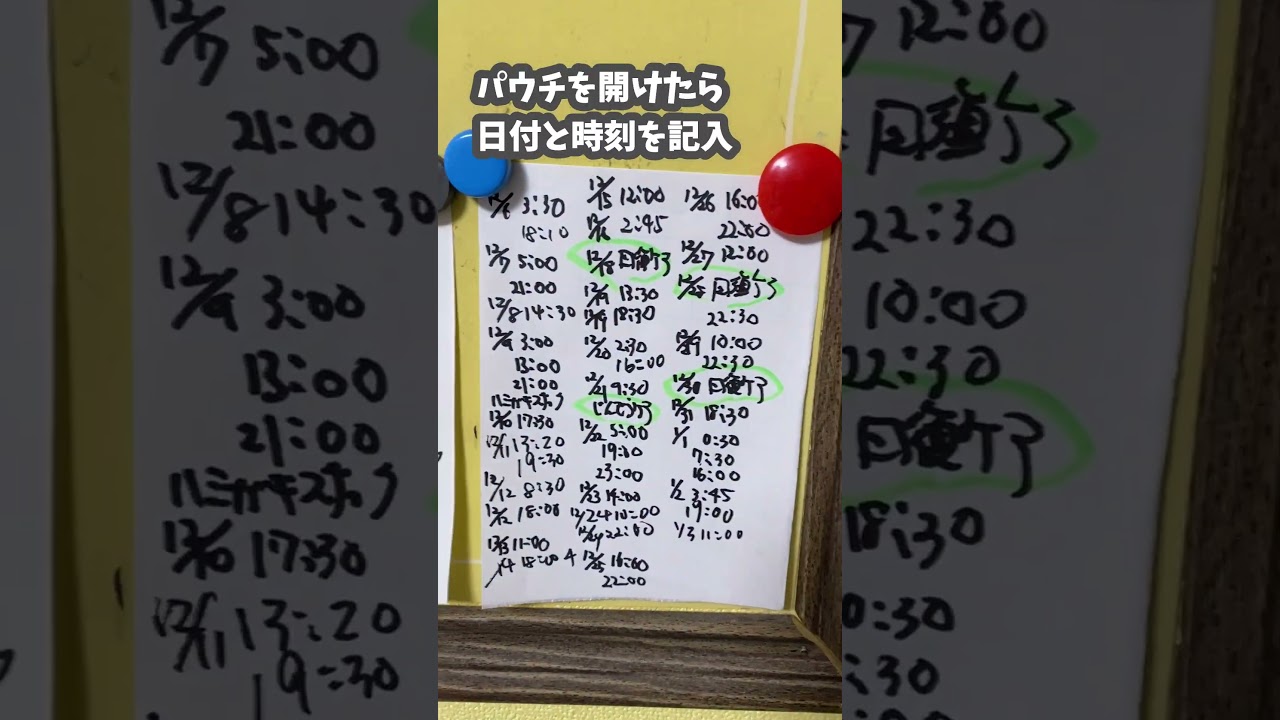 パウチを開けたら
日付と時刻を記入
12/6 3:30
18:10
12/7 5:00
21:00
12/8 14:30
12/9 3:00
13:00
21:00
ハミガキスホ゛ク
12/10 17:30
12/11 13:20
19:30
12/12 8:30
12/12 18:00
12/13 11:00
14 18:00
12/15 12:00
12/16 2:45
12/18
12/19 13:30
12/19 18:30
12/20 2:30
16:00
12/21 9:30
12/22 5:00
19:00
23:00
12/23 14:00
12/24 10:00
12/24 22:00
12/25 16:00
22:00
12/26 16:0
22:00
12/27 12:00
22:30
12/29 10:00
22:30
12/30
12/31 18:30
1/1 0:30
7:30
16:00
1/2 3:45
19:00
1/3 11:00